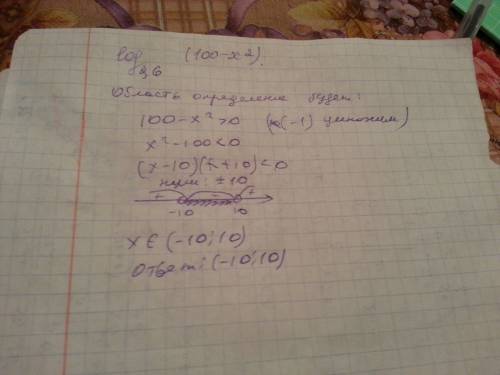 log₃,₆ (100-x²).
Область определение будет:
100-x²>0 (·(-1) умножим)
x²-100<0
(x-10)(x+10)<0
нули: ±10
+ - +
-10 10
x∈(-10;10)
Ответ: (-10;10)